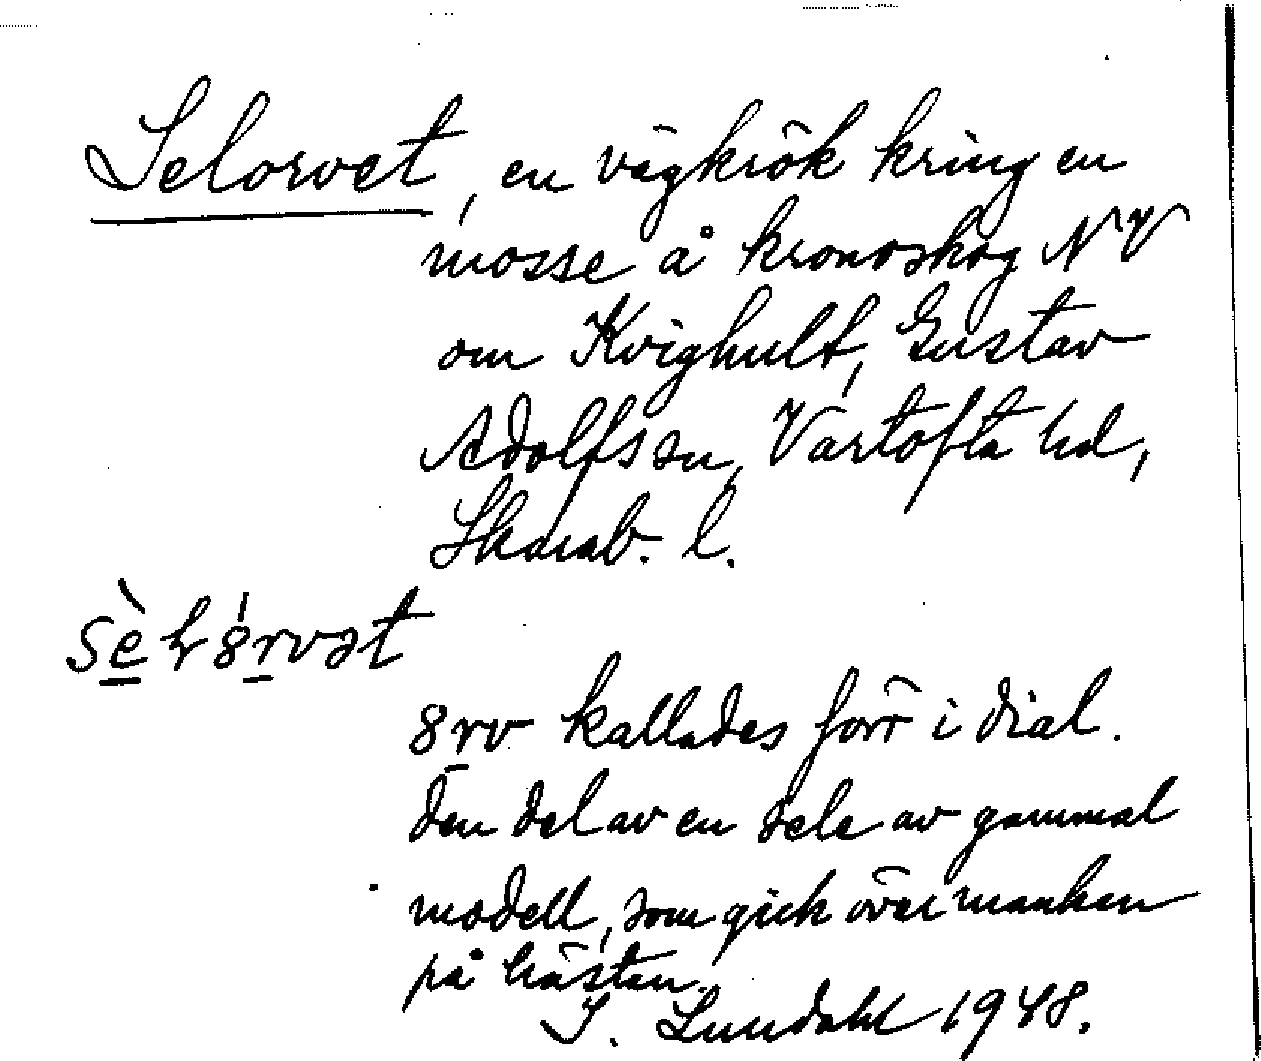 Selorvet, en vägkrök kring en
mosse å kronoskog NV
om Kvighult, Gustav
Adolfs sn, Vartofta hd,
Skarab. l.
sè
8rv kallades förr i dial.
den del av en sele av gammal
modell, som gick över manken
på hästen.
I. Lundahl 1948.